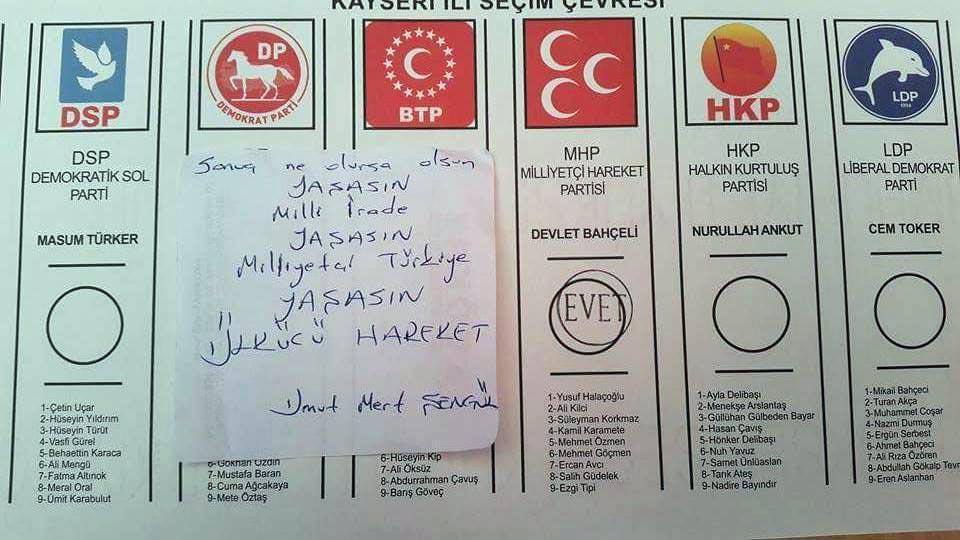 KAYSERİ İLİ SEÇİM ÇEVRESİ
DSP
DSP
DEMOKRATİK SOL
PARTİ
MASUM TÜRKER
1-Çetin Uçar
2-Hüseyin Yıldırım
3-Hüseyin Türüt
4-Vasfi Gürel
5-Behaettin Karaca
6-Ali Mengü
7-Fatma Altınok
8-Meral Oral
9-Ümit Karabulut
DP
DEMOKRAT PARTİ
Sonuç ne olursa olsun
YAŞASIN
Milli İrade
YAŞASIN
Milliyetçi Türkiye
YAŞASIN
ÜLKÜCÜ HAREKET
Umut Mert ŞENGÜL
6-Gökhan Özdin
7-Mustafa Baran
8-Cuma Ağcakaya
9-Mete Öztaş
BTP
6-Hüseyin Kip
7-Ali Öksüz
8-Abdurrahman Çavuş
9-Barış Göveç
MHP
MİLLİYETÇİ HAREKET
PARTİSİ
DEVLET BAHÇELİ
EVET
1-Yusuf Halaçoğlu
2-Ali Kilci
3-Süleyman Korkmaz
4-Kamil Karamete
5-Mehmet Özmen
6-Mehmet Göçmen
7-Ercan Avcı
8-Salih Güdelek
9-Ezgi Tipi
HKP
HKP
HALKIN KURTULUŞ
PARTİSİ
NURULLAH ANKUT
1-Ayla Delibaşı
2-Menekşe Arslantaş
3-Güllühan Gülbeden Bayar
4-Hasan Çavış
5-Hönker Delibaşı
6-Nuh Yavuz
7-Samet Ünlüaslan
8-Tarık Ateş
9-Nadire Bayındır
LDP
1994
LDP
LİBERAL DEMOKRAT
PARTİ
CEM TOKER
1-Mikail Bahçeci
2-Turan Akça
3-Muhammet Coşar
4-Nazmi Durmuş
5-Ergün Serbest
6-Ahmet Bahçeci
7-Ali Rıza Özören
8-Abdullah Gökalp Tevr
9-Eren Aslanhan